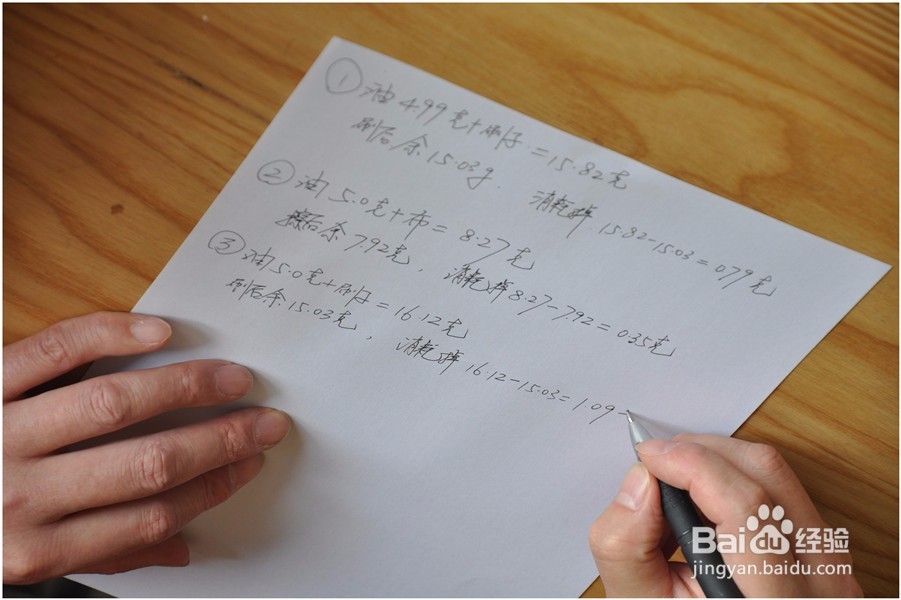 ① 油4.99克+刷子=15.82克
刷后余15.03g. 消耗掉 15.82-15.03=0.79克
② 油5.0克+布=8.27克
擦后余7.92克, 消耗掉8.27-7.92=0.35克
③ 油5.0克+刷子=16.12克
刷后余15.03克, 消耗掉 16.12-15.03=1.09
Baidu经验
jingyan.baidu.com